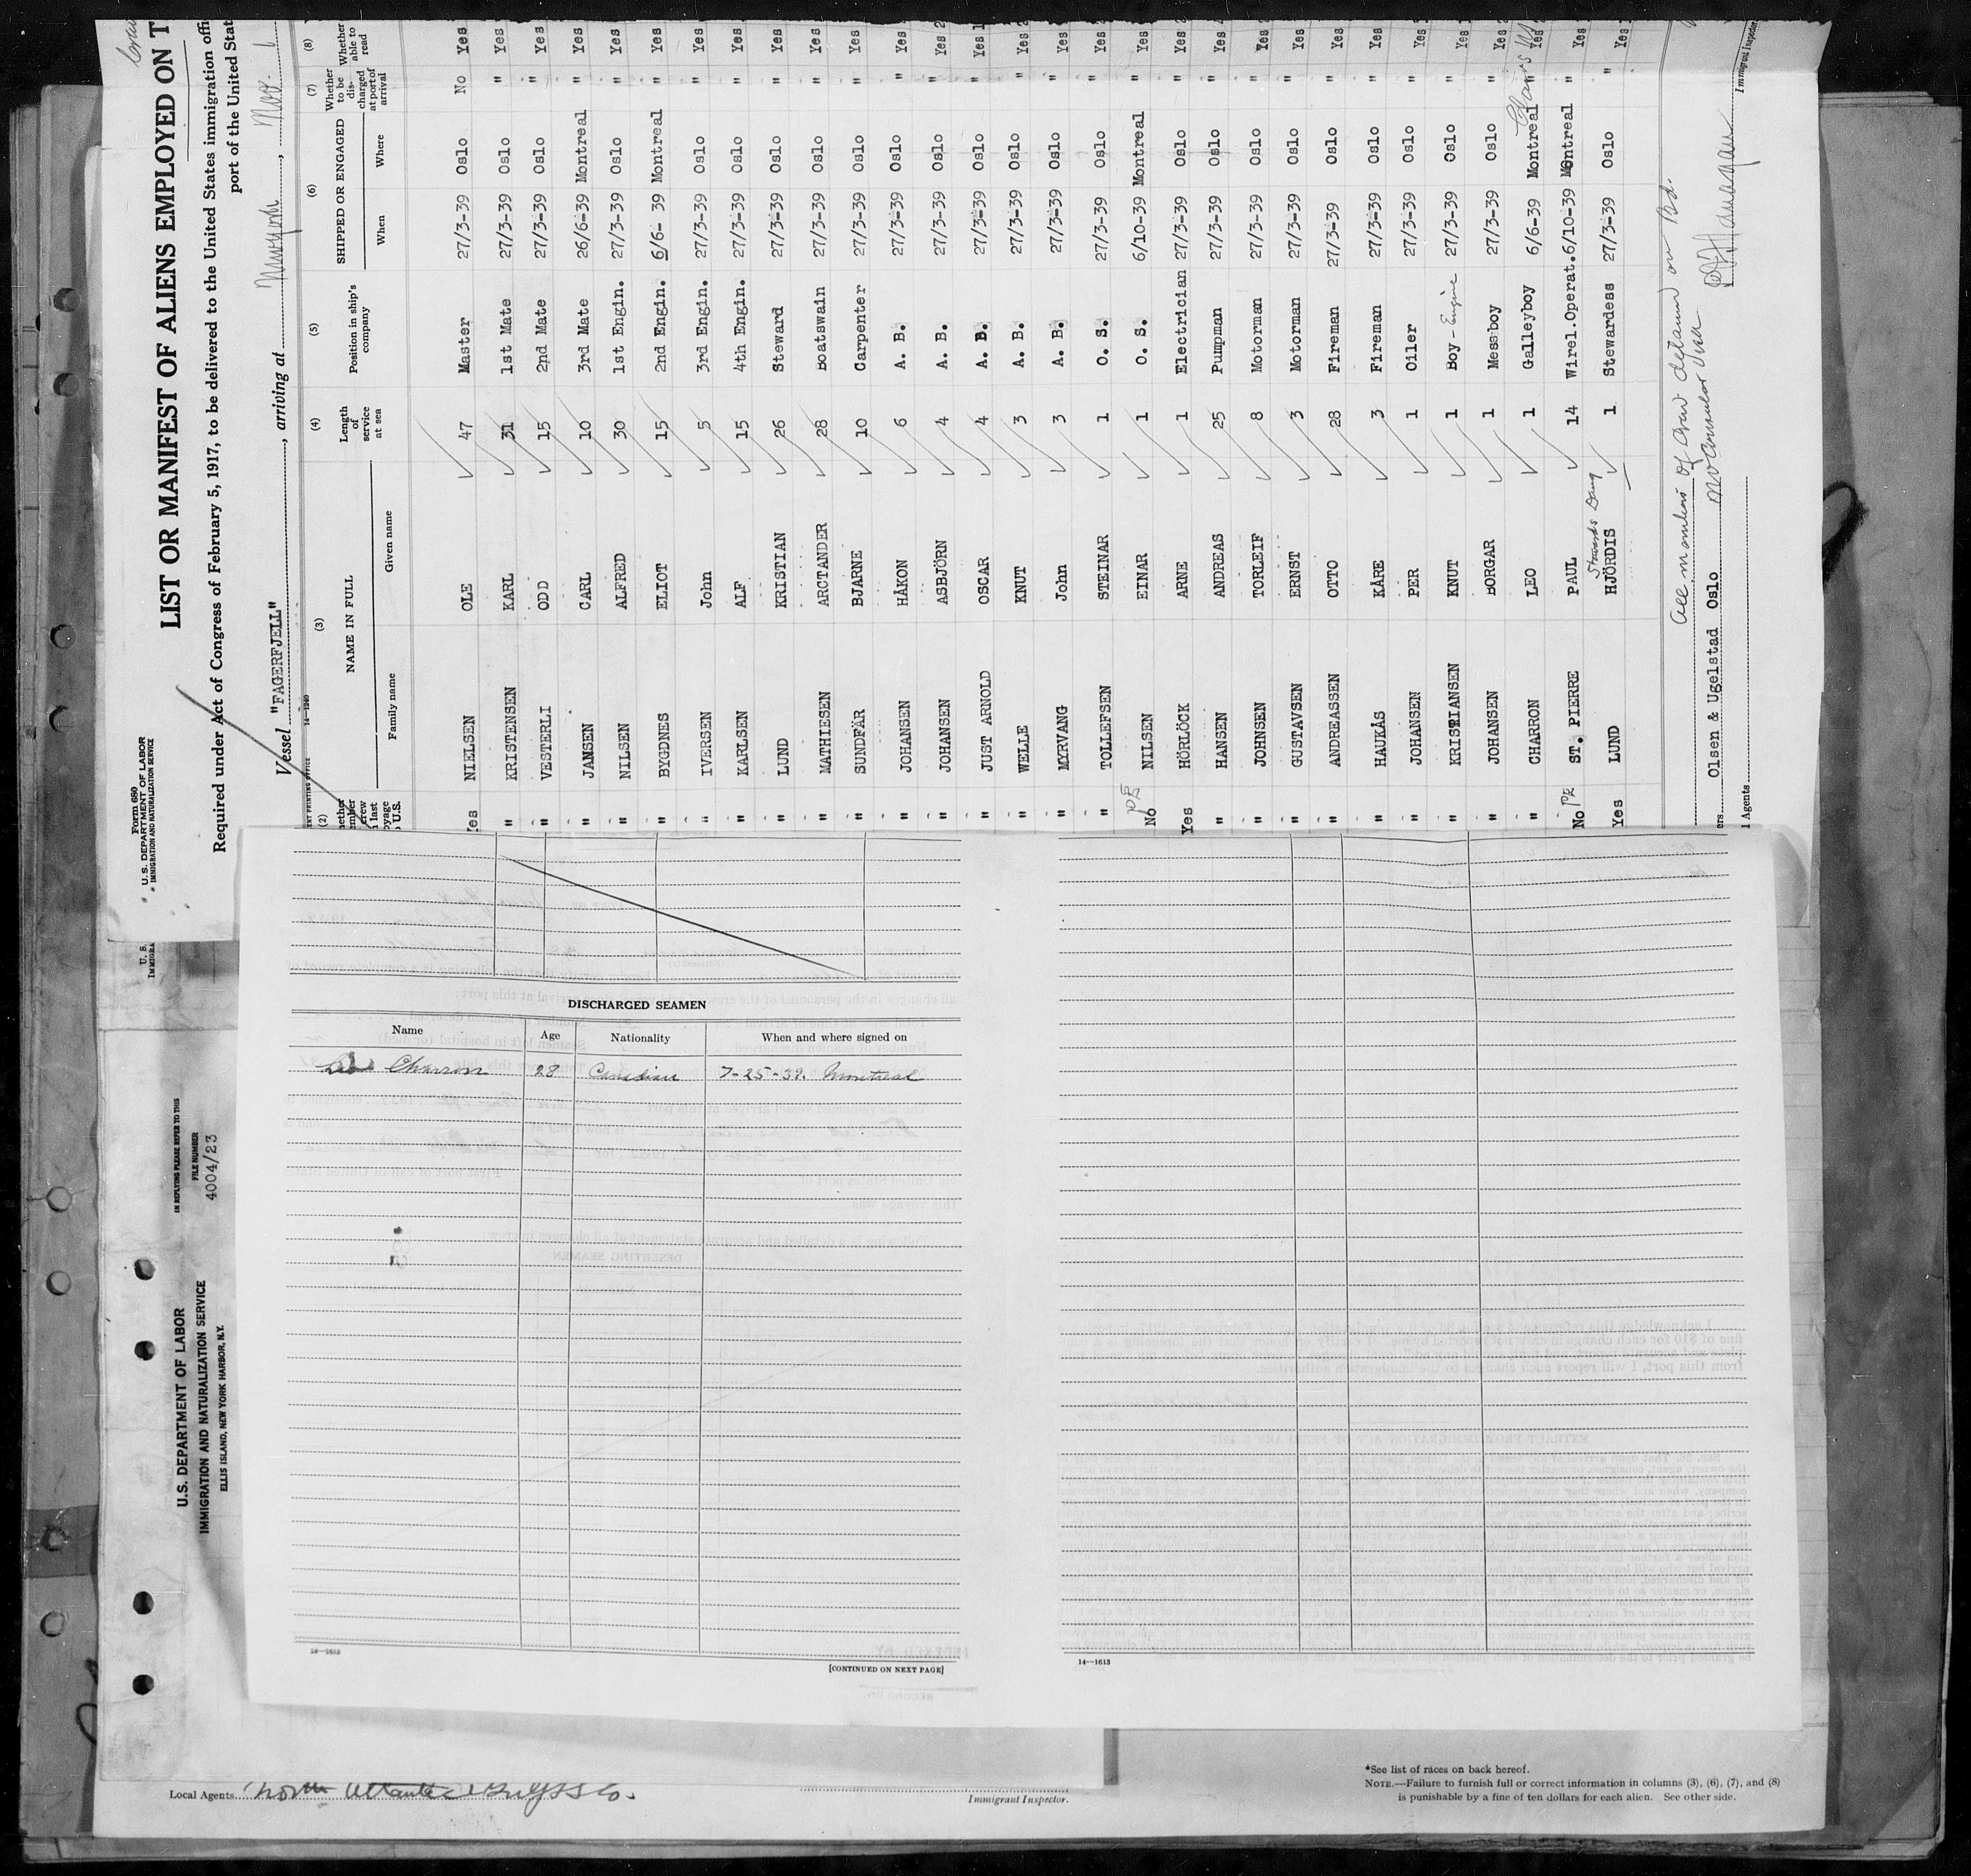 Form 680
U.S. DEPARTMENT OF LABOR
IMMIGRATION AND NATURALIZATION SERVICE
LIST OR MANIFEST OF ALIENS EMPLOYED ON T
Required under Act of Congress of February 5, 1917, to be delivered to the United States immigration offi
port of the United Stat
Vessel "FAGERFJELL", arriving at Newyork, Nov. 6
14-1240
(2) (3) (4) (5) (6) (7) (8)
NAME IN FULL
Family name Given name
Length of service at sea
Position in ship's company
SHIPPED OR ENGAGED
When Where
Whether to be discharged at port of arrival
Whether able to read
Yes NIELSEN OLE 47 Master 27/3-39 Oslo No Yes
" KRISTENSEN KARL 31 1st Mate 27/3-39 Oslo " Yes
" VESTERLI ODD 15 2nd Mate 27/3-39 Oslo " Yes
" JANSEN CARL 10 3rd Mate 26/6-39 Montreal " Yes
" NILSEN ALFRED 30 1st Engin. 27/3-39 Oslo " Yes
" BYGDNES ELIOT 15 2nd Engin. 6/6- 39 Montreal " Yes
" IVERSEN John 5 3rd Engin. 27/3-39 Oslo " Yes
" KARLSEN ALF 15 4th Engin. 27/3-39 Oslo " Yes
" LUND KRISTIAN 26 Steward 27/3-39 Oslo " Yes
" MATHIESEN ARCTANDER 28 Boatswain 27/3-39 Oslo " Yes
" SUNDFÄR BJARNE 10 Carpenter 27/3-39 Oslo " Yes
" JOHANSEN HÅKON 6 A. B. 27/3-39 Oslo " Yes
" JOHANSEN ASBJÖRN 4 A. B. 27/3-39 Oslo " Yes
" JUST ARNOLD OSCAR 4 A. B. 27/3-39 Oslo " Yes
" WELLE KNUT 3 A. B. 27/3-39 Oslo " Yes
" MYRVANG John 3 A. B. 27/3-39 Oslo " Yes
" TOLLEFSEN STEINAR 1 O. S. 27/3-39 Oslo " Yes
No NILSEN EINAR 1 O. S. 6/10-39 Montreal " Yes
Yes HÖRLÖCK ARNE 1 Electrician 27/3-39 Oslo " Yes
" HANSEN ANDREAS 25 Pumpman 27/3-39 Oslo " Yes
" JOHNSEN TORLEIF 8 Motorman 27/3-39 Oslo " Yes
" GUSTAVSEN ERNST 3 Motorman 27/3-39 Oslo " Yes
" ANDREASSEN OTTO 28 Fireman 27/3-39 Oslo " Yes
" HAUKÅS KÅRE 3 Fireman 27/3-39 Oslo " Yes
" JOHANSEN PER 1 Oiler 27/3-39 Oslo " Yes
" KRISTIANSEN KNUT 1 Boy - Engine 27/3-39 Oslo " Yes
" JOHANSEN BORGAR 1 Messboy 27/3-39 Oslo " Yes
" CHARRON LEO 1 Galleyboy 6/6-39 Montreal " Yes
No ST. PIERRE PAUL 14 Wirel.Operat. 6/10-39 Montreal " Yes
Yes LUND HJÖRDIS 1 Stewardess 27/3-39 Oslo " Yes
All members of crew detained on Bd.
Olsen & Ugelstad Oslo
No Consular Visa
Immigrant Inspector
DISCHARGED SEAMEN
Name Age Nationality When and where signed on
Leo Charron 28 Canadian 7-25-39. Montreal
14-1613
[CONTINUED ON NEXT PAGE]
14-1613
IN REPLYING PLEASE REFER TO THIS
FILE NUMBER
4004/23
U.S. DEPARTMENT OF LABOR
IMMIGRATION AND NATURALIZATION SERVICE
ELLIS ISLAND, NEW YORK HARBOR, N.Y.
Local Agents. North Atlantic & Gulf SS Co.
Immigrant Inspector.
*See list of races on back hereof.
NOTE.—Failure to furnish full or correct information in columns (3), (6), (7), and (8)
is punishable by a fine of ten dollars for each alien. See other side.